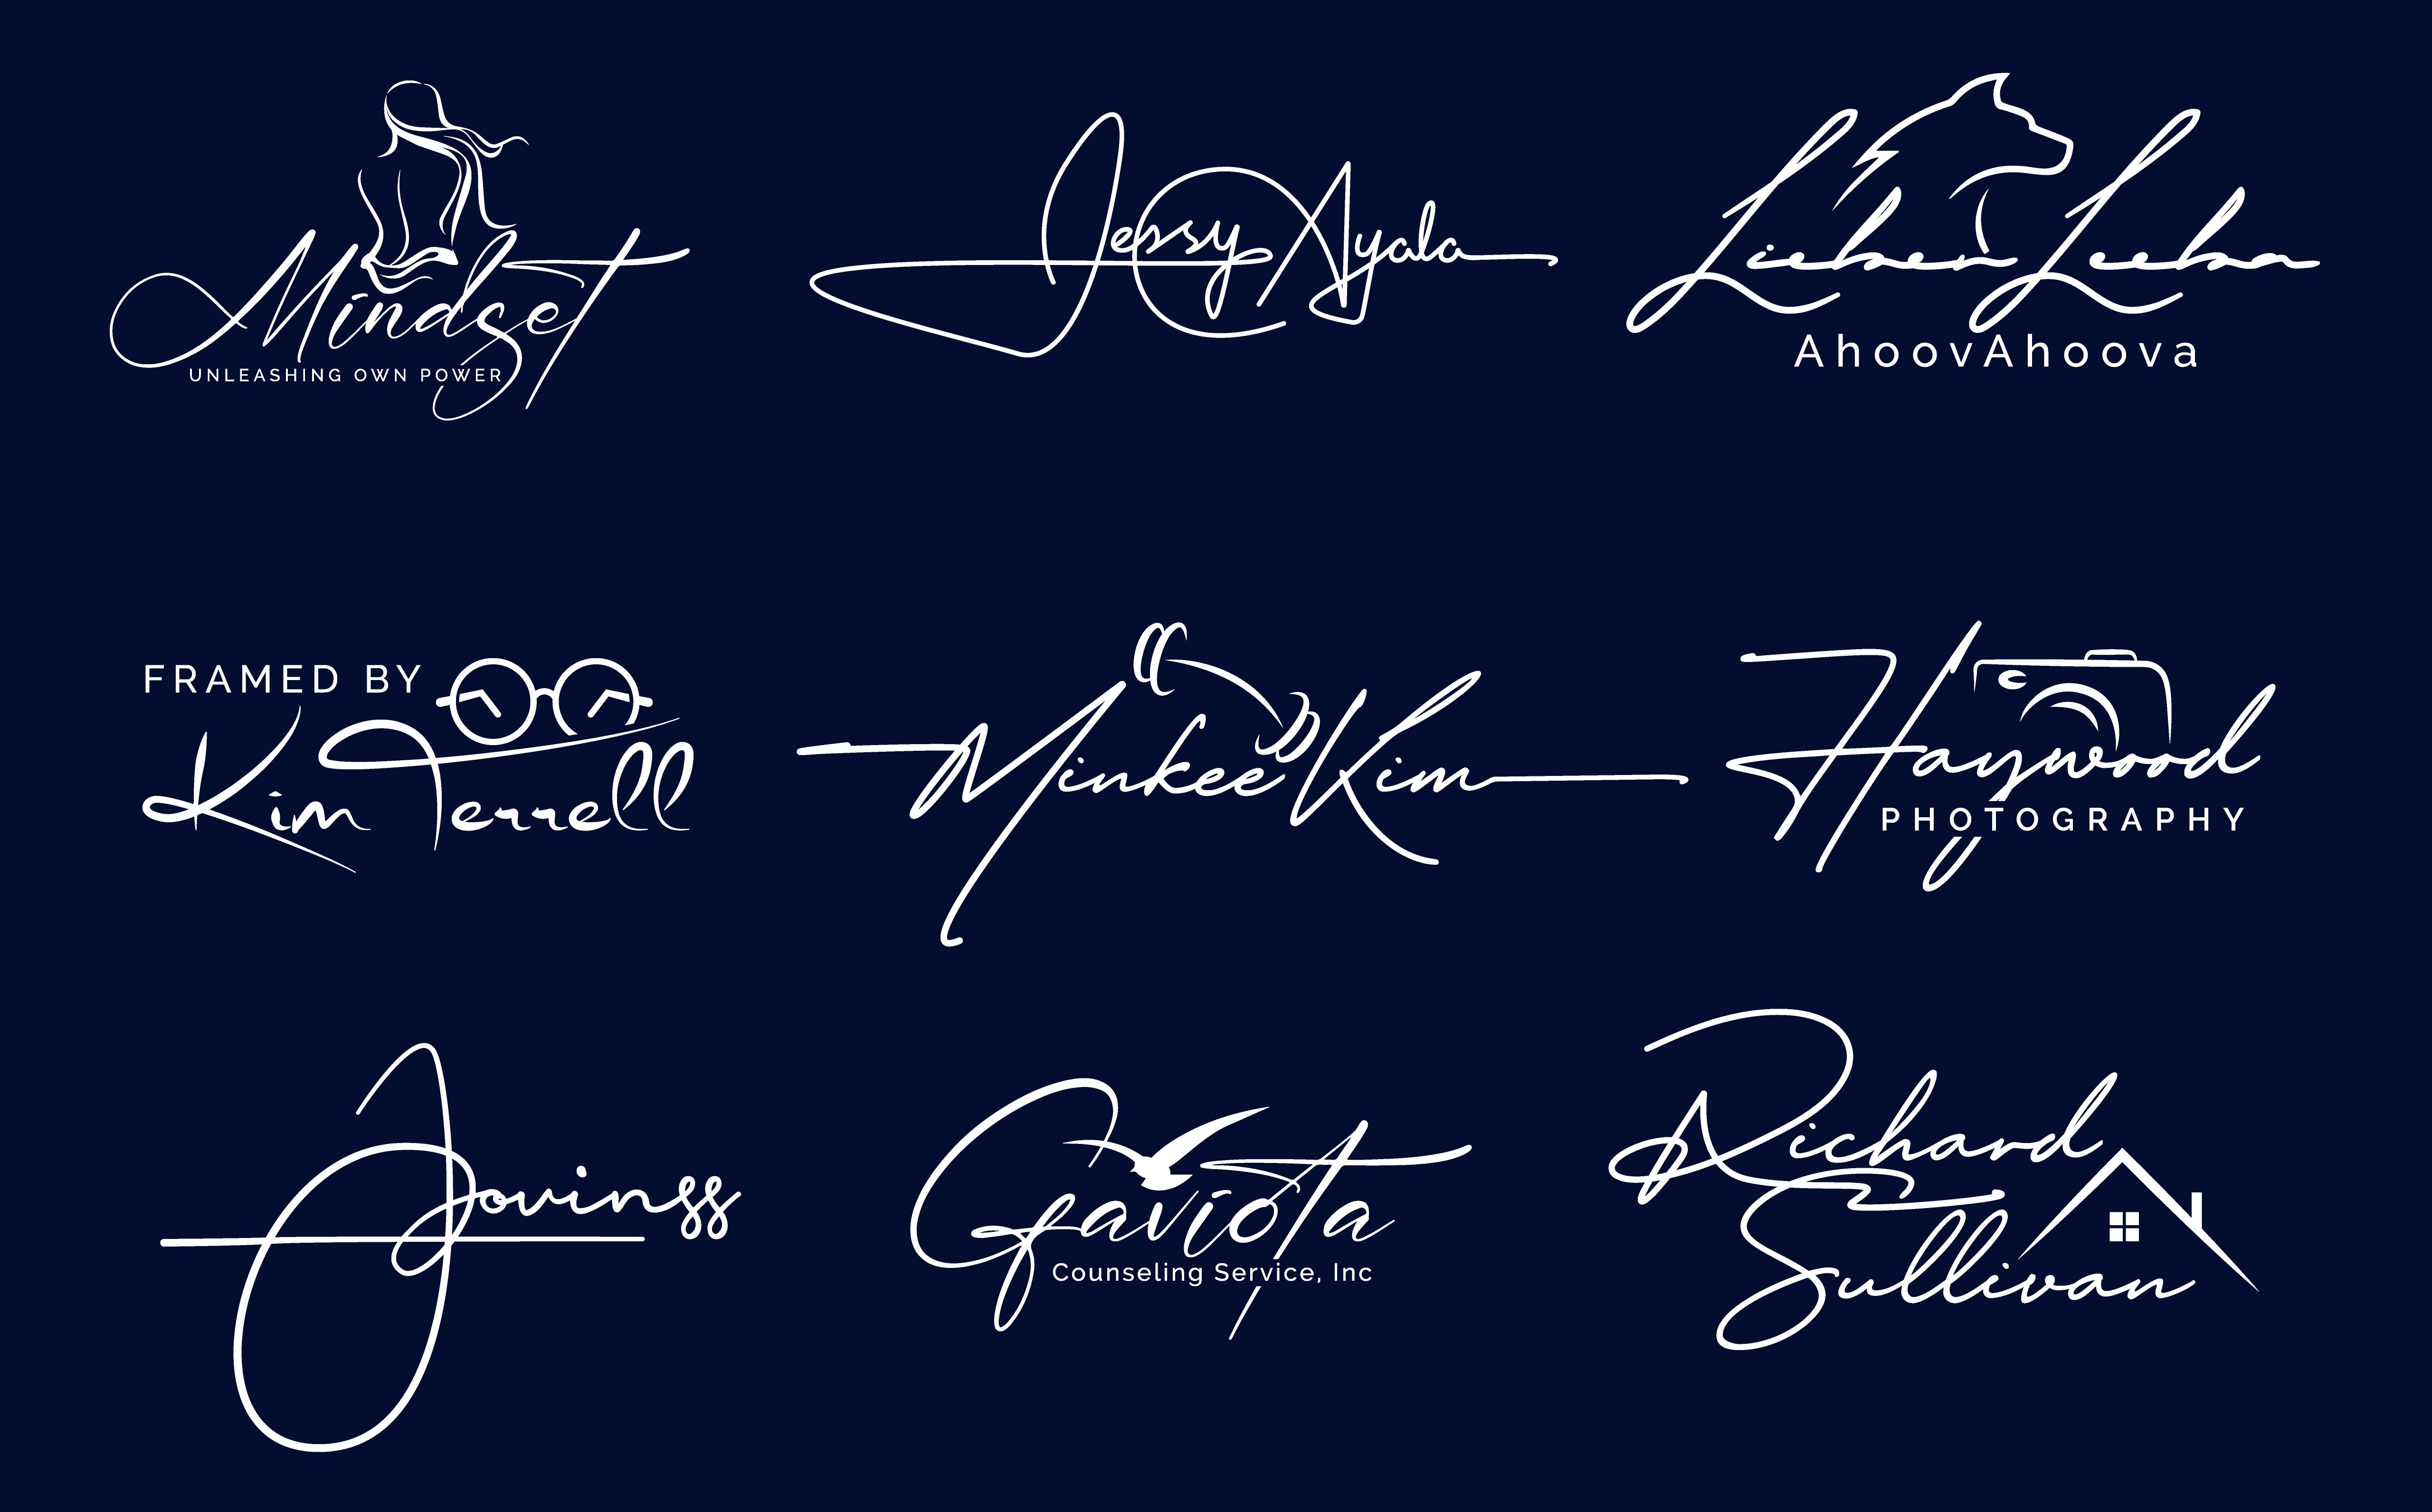 Mindset
UNLEASHING OWN POWER
Jepsy Ayala
Lieben Leeba
AhoovAhoova
FRAMED BY
Kim Terrell
Minkee Kim
Haywood
PHOTOGRAPHY
Joviness
Gaviota
Counseling Service, Inc
Richard
Sullivan